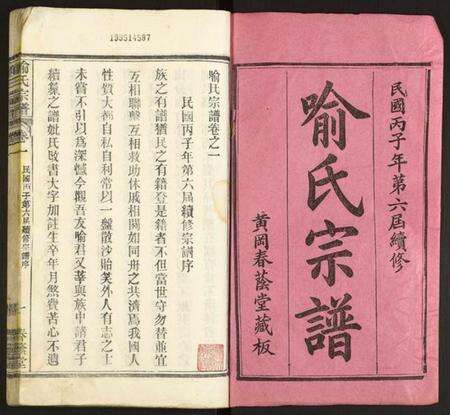 民國丙子年第六屆續修
喻氏宗譜
黃岡春蔭堂藏板
199514587
喻氏宗譜卷之一
民國丙子年第六屆續修宗譜序
族之有譜猶民之有籍登是籍者不但當世守勿替並宜
互相聯繫互相救助休戚相關如同舟之共濟爲我國人
性質大都自私自利常以一盤散沙貽笑外人有志之士
未嘗不引以爲深憾今觀吾友喻君又莘與族中諸君子
結纂之譜妣氏改書大字加註生卒年月煞費苦心不遺
喻氏宗譜
卷一
民國丙子第六屆續修宗譜序
一
春蔭堂